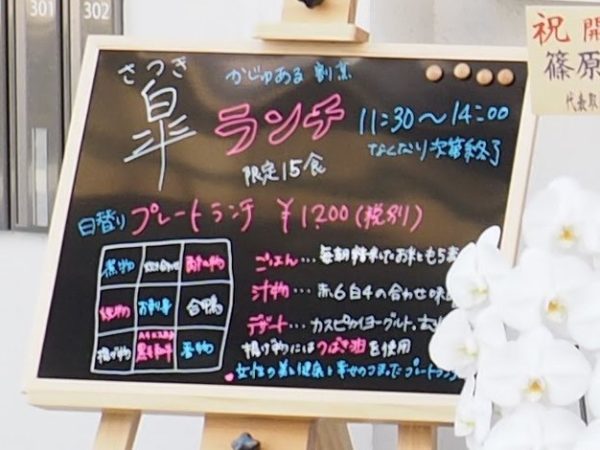 301
302
祝 開
篠原
代表取
さつき
皐
かじゅある 割烹
ランチ
11:30～14:00
なくなり次第終了
限定15食
日替り プレートランチ ¥1,200(税別)
煮物 炊き合わせ 酢の物
焼物 お刺身 合鴨
揚げ物 黒毛和牛 香物
ごはん…毎朝精米したお米と
汁物…赤6白4の合わせ味
デザート…カスピ海ヨーグルト、
揚げ物にはつばき油を使用
女性の美と健康と幸せのつまったプレートラン